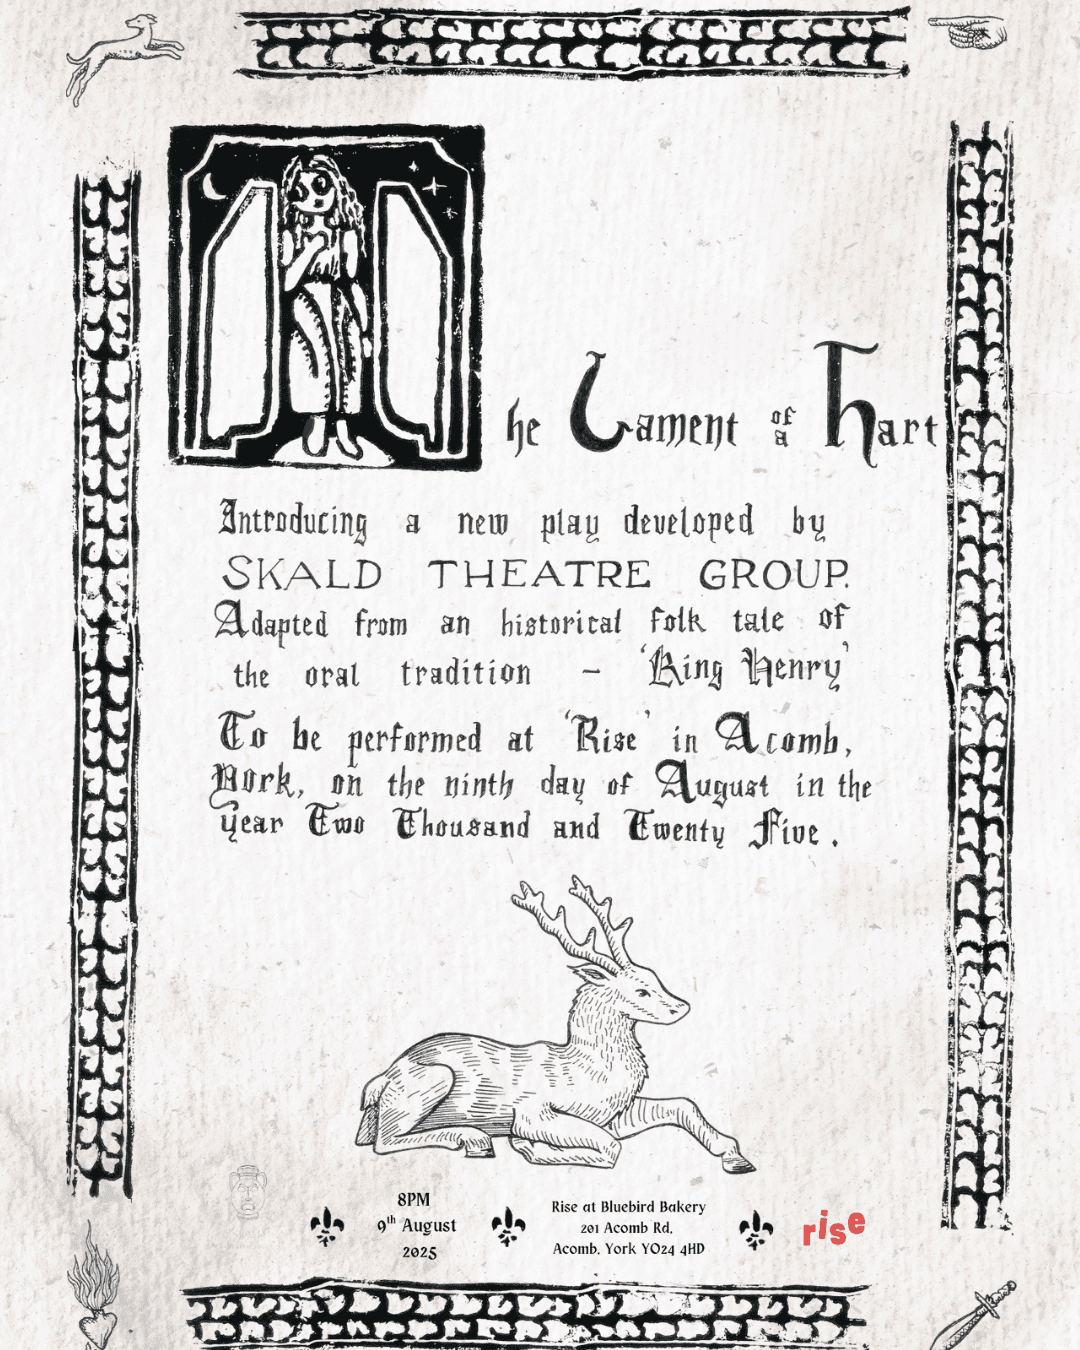 The Lament of a Hart
Introducing a new play developed by
SKALD THEATRE GROUP.
Adapted from an historical folk tale of
the oral tradition – 'King Henry'
To be performed at 'Rise' in Acomb,
York, on the ninth day of August in the
year Two Thousand and Twenty Five.
8PM
9th August
2025
Rise at Bluebird Bakery
201 Acomb Rd,
Acomb, York YO24 4HD
rise